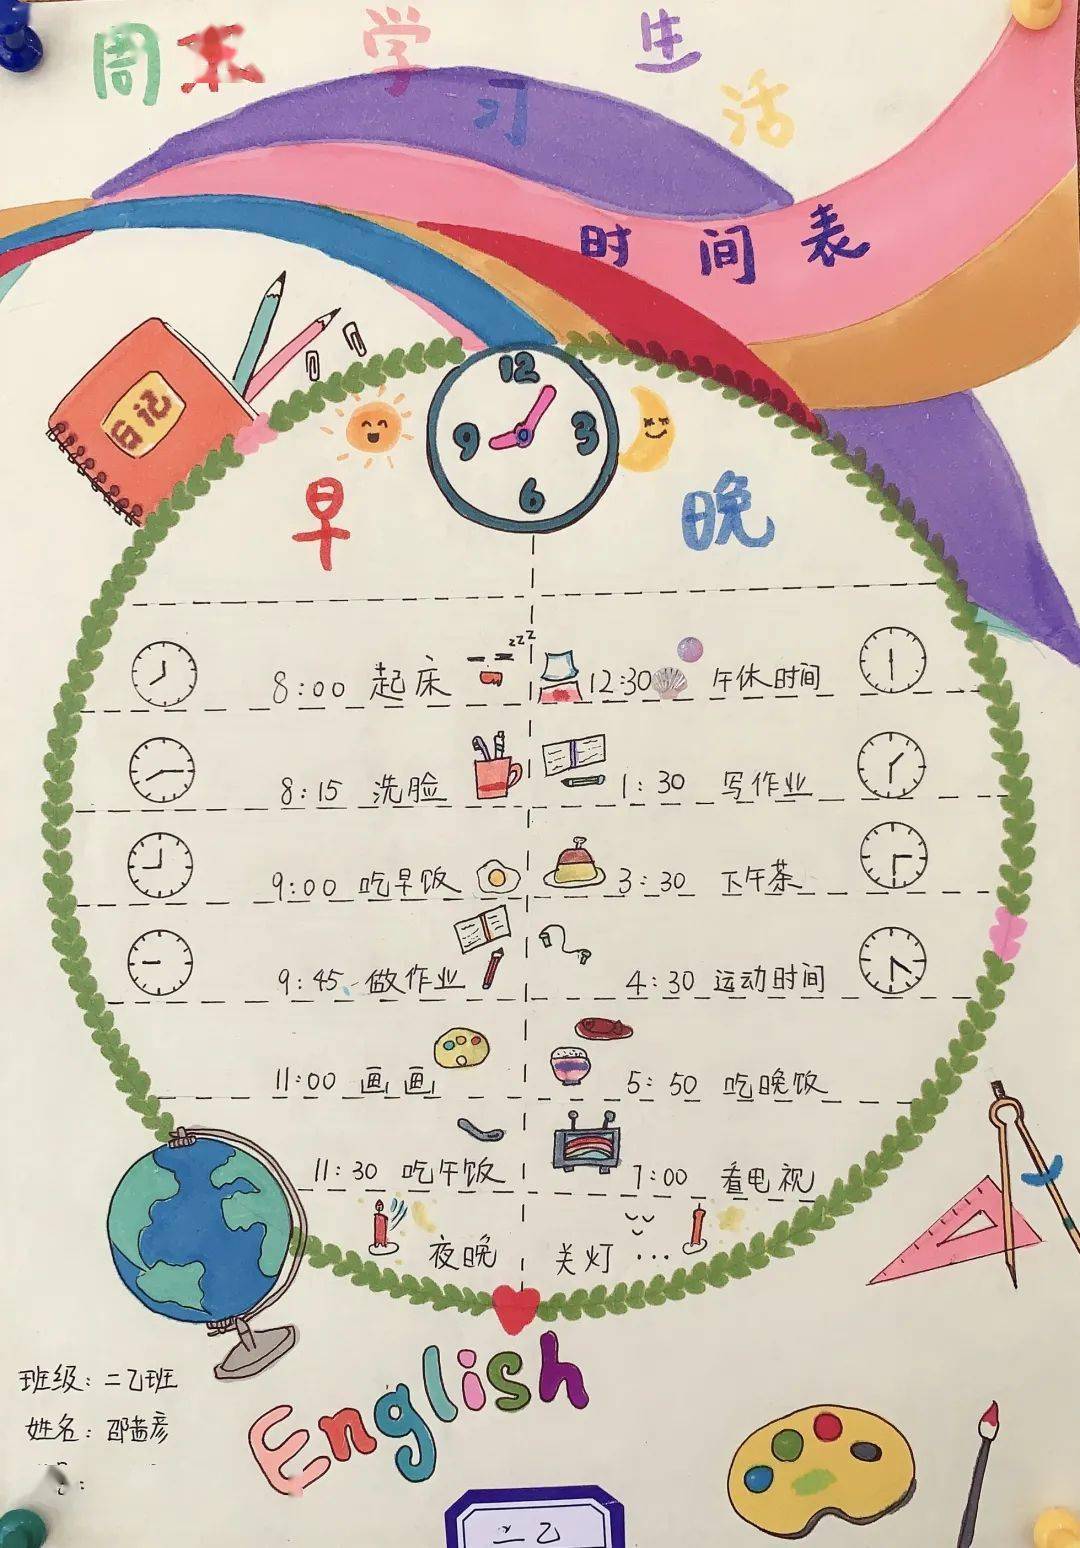 周末学习生活
时间表
日记
12
9 3
6
早 晚
8:00 起床 12:30 午休时间
8:15 洗脸 1:30 写作业
9:00 吃早饭 3:30 下午茶
9:45 做作业 4:30 运动时间
11:00 画画 5:50 吃晚饭
11:30 吃午饭 7:00 看电视
夜晚 关灯...
zzz
English
班级:二乙班
姓名:邵茜彦
二乙